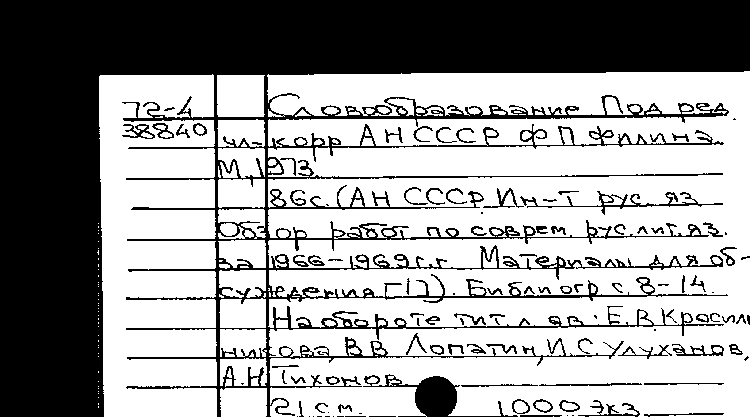 72-4 Словообразование Под ред.
38840 чл-корр АН СССР Ф П Филина.
М, 1973
86с. (АН СССР. Ин-т рус. яз
Обзор работ по соврем. рус. лит. яз.
за 1966-1969г.г. Материалы для об-
суждения [1]). Библиогр с. 8-14.
На обороте тит. л. ав.: Е.В. Красиль
никова, В В Лопатин, И.С. Улуханов,
А.Н. Тихонов
21 см. 1000 экз